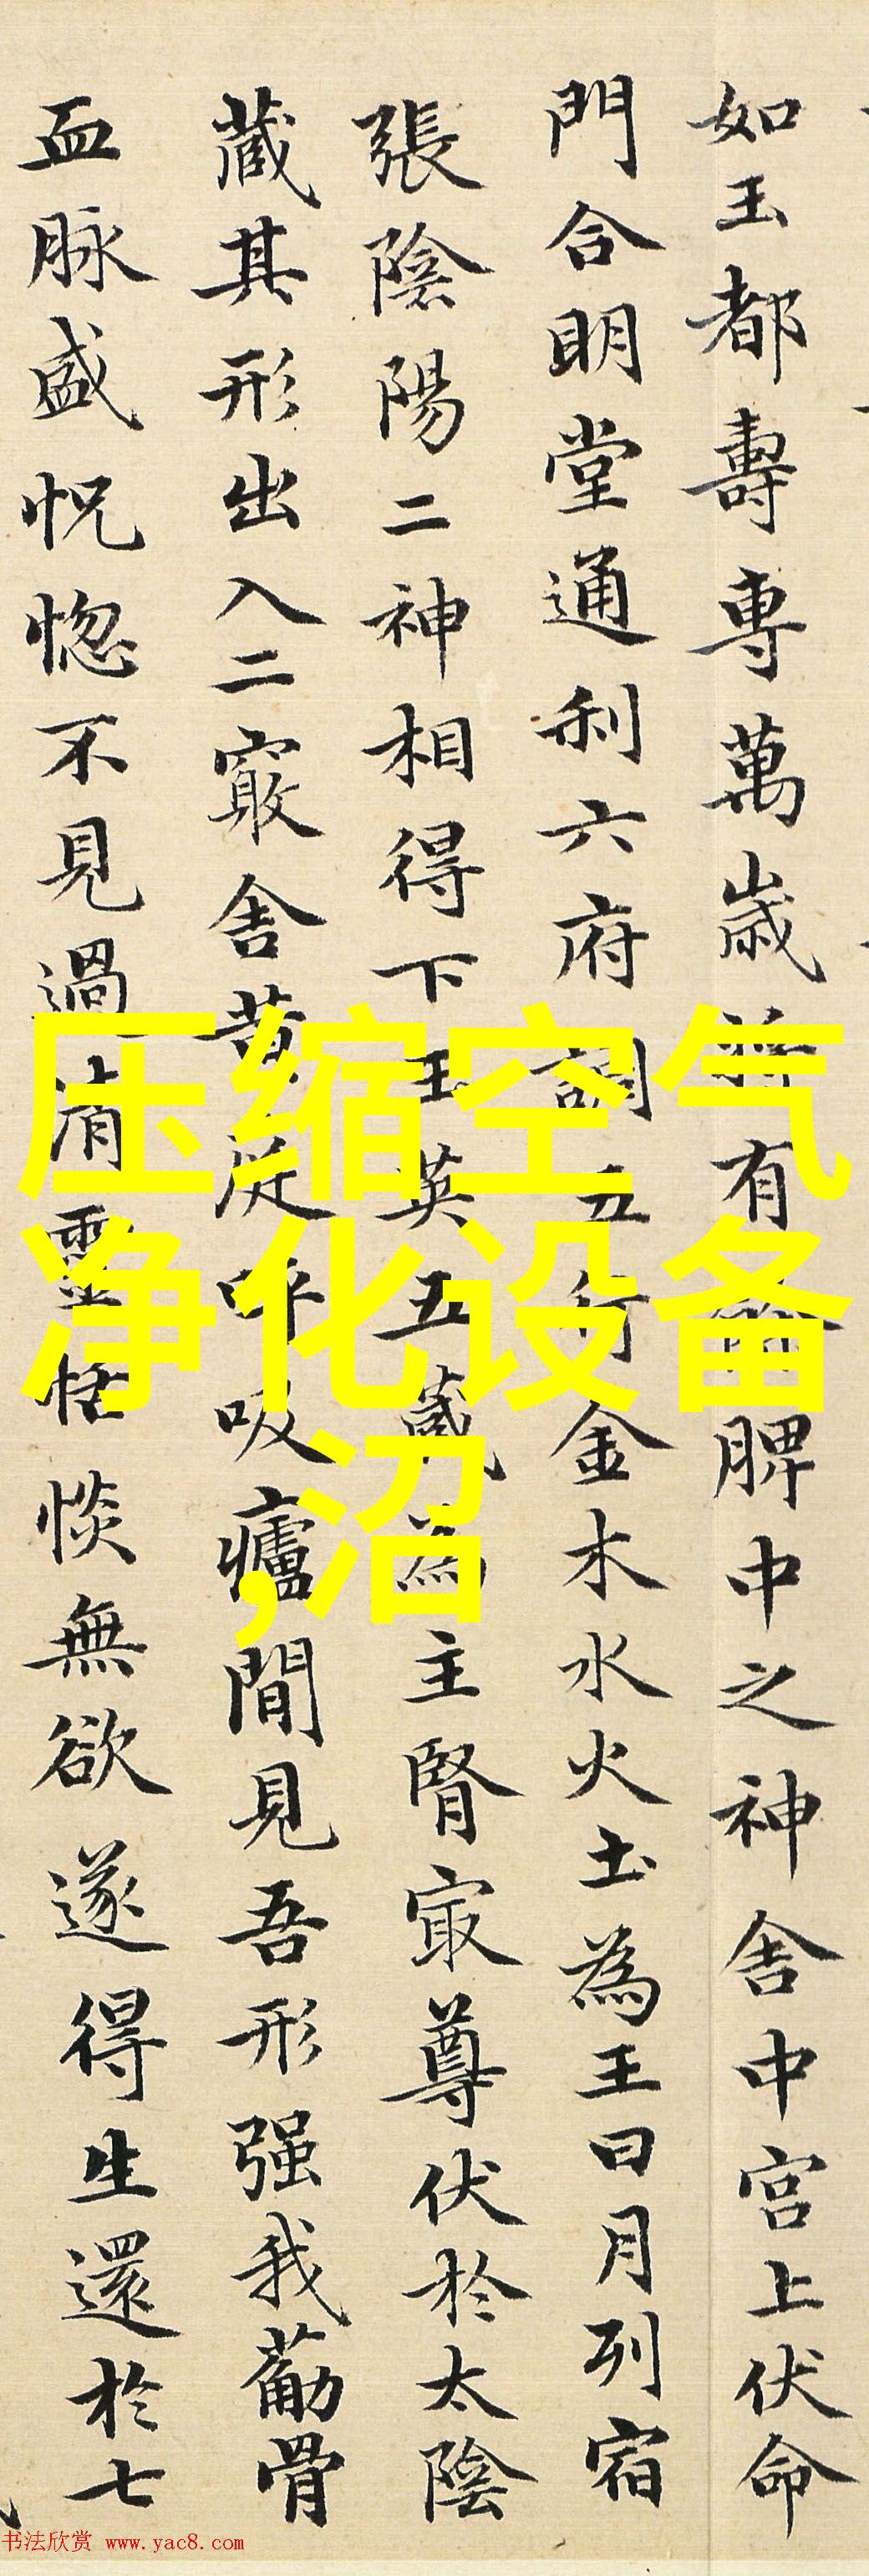 如玉都壽專萬歲將有脾中之神舍中宮上伏命
門合明堂通利六府調五行金木水火土為王日月列宿
張陰陽二神相得下玉英五藏為主腎寂尊伏於太陰
藏其形出入二竅舍黃庭呼吸廬間見吾形强我筋骨
血脉盛怳惚不見過清靈恬惔無欲遂得生還於七
压缩空气
净化设备
,沼
书法欣赏 www.yac8.com